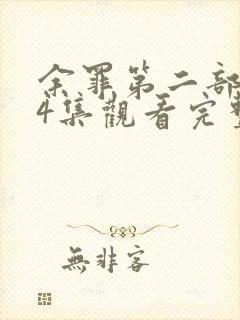 余罪第二部
4集觀看完整
無非客